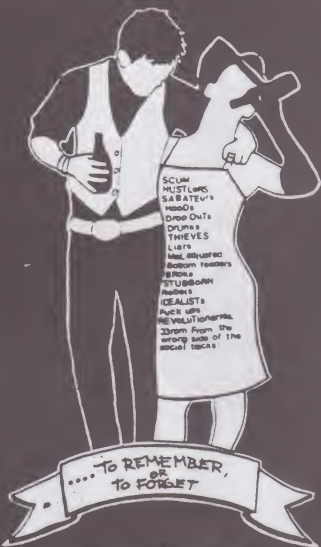 SCUM
HUSTLERS
SABATEURS
HOODS
Drop OuTs
Drunks
THIEVES
Liars
Mal Adjusted
Bottom feeders
BROKE
STUBBORN
Rebels
IDEALISTs
Fuck ups
REVOLUTIONARIES
From the
wrong side of the
social tracks
....TO REMEMBER,
OR
TO FORGET